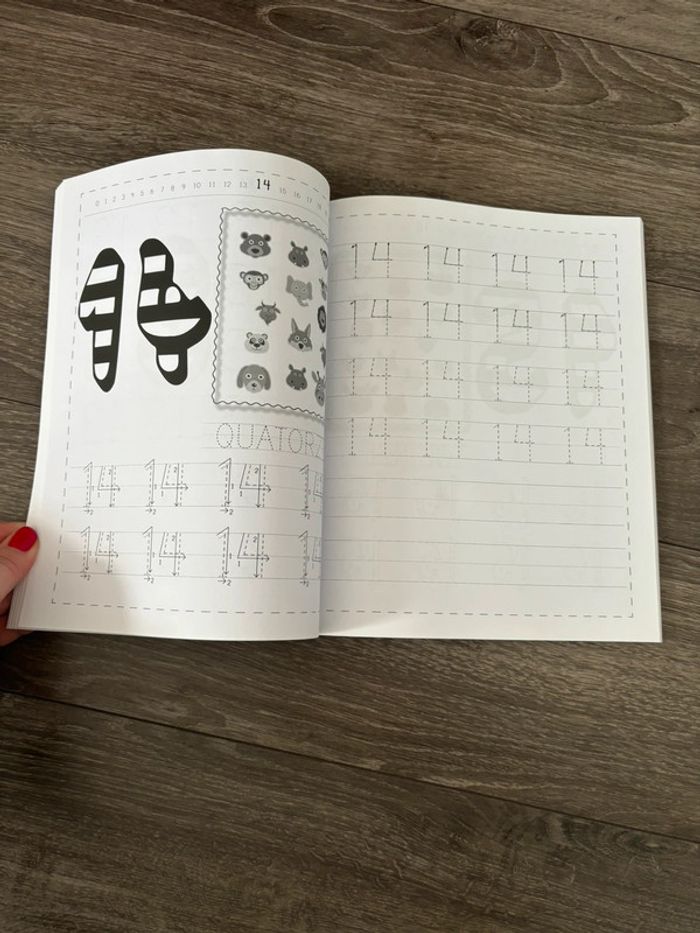 0 1 2 3 4 5 6 7 8 9 10 11 12 13 14 15 16 17 18
14
QUATORZ
14 14 14 14
14 14 14 14
14 14 14 14
14 14 14 14
14 14 14 14
14 14 14 14